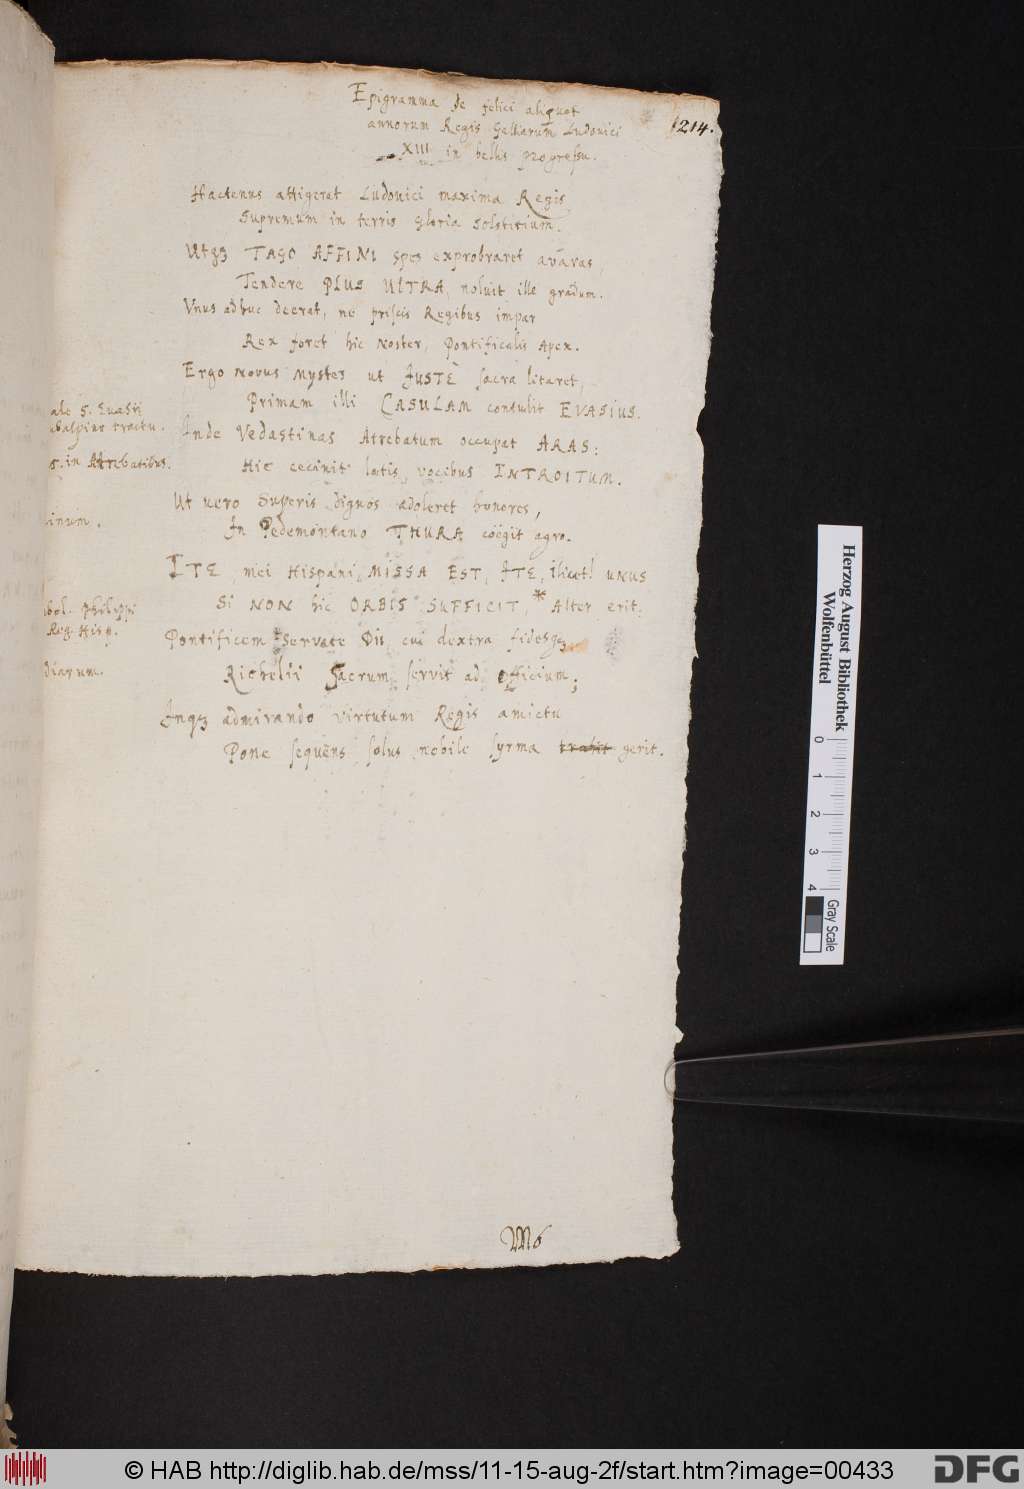 Epigramma de felici aliquot
annorum Regis Galliarum Ludovici
XIII in bellis progressu.
1214.
Hactenus attigerat Ludovici maxima Regis
Supremum in terris Gloria Solstitium.
Utqз TAGO AFFINI spes exprobraret avaras,
Tendere PLUS ULTRA, noluit ille gradum.
Vnus adhuc deerat, ne priscis Regibus impar
Rex foret hic Noster, Pontificalis Apex.
Ergo novus Mystes ut JUSTÈ sacra litaret,
Primam illi CASULAM contulit EVASIUS.
Inde Vedastinas Atrebatum occupat ARAS:
Hic cecinit lætis vocibus INTROITUM.
Ut vero Superis dignos adoleret honores,
In Pedemontano THURA coëgit agro.
ITE, mei Hispani, MISSA EST, ITE, ilicet! unus
Si NON hic ORBIS SUFFICIT, * Alter erit.
Pontificem Servate Dii, cui dextra fidesqз
Richelii Sacrum servit ad officium;
Inqз admirando virtutum Regis amictu
Pone sequens solus nobile syrma trahit gerit.
ale S. Evasii
balpino tractu.
S. in Atrebatibus.
inum.
bol. Philippi
Reg. Hisp.
diarum.
Herzog August Bibliothek
Wolfenbüttel
0 1 2 3 4
Gray Scale
© HAB http://diglib.hab.de/mss/11-15-aug-2f/start.htm?image=00433
DFG